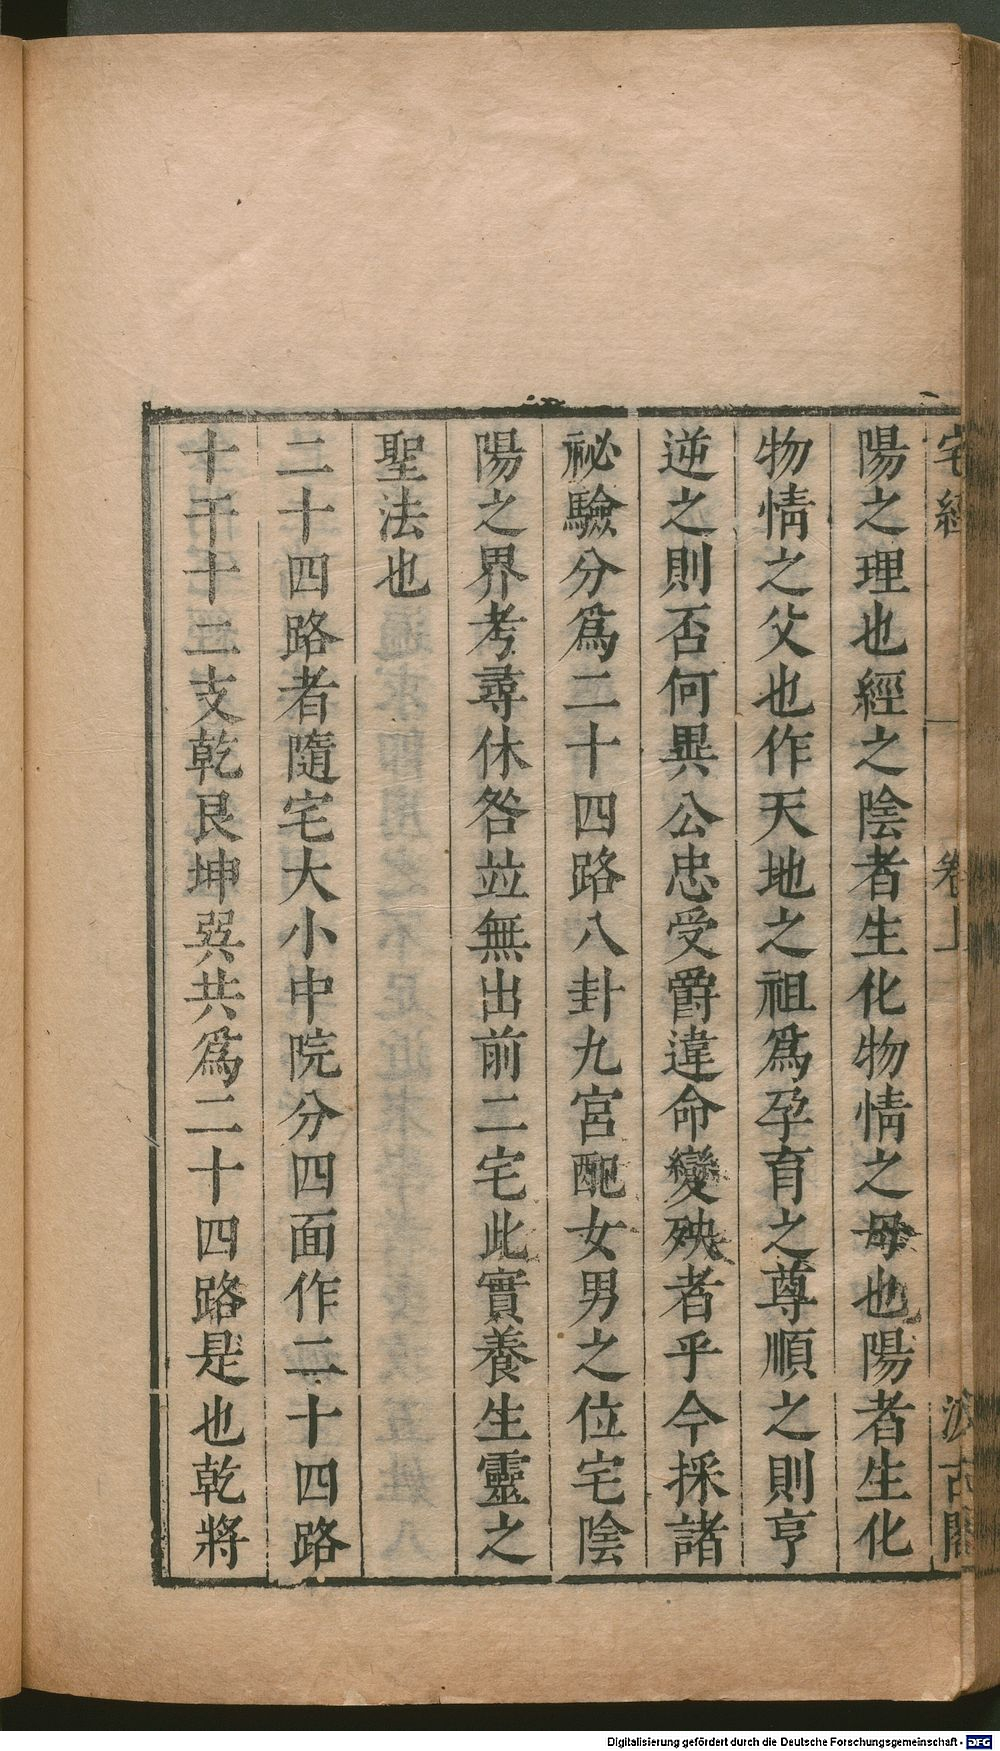 宅經 卷上 汲古閣
陽之理也經之陰者生化物情之母也陽者生化
物情之父也作天地之祖爲孕育之尊順之則亨
逆之則否何異公忠受爵違命變殃者乎今採諸
祕驗分爲二十四路八卦九宮配女男之位宅陰
陽之界考尋休咎竝無出前二宅此實養生靈之
聖法也
二十四路者隨宅大小中院分四面作二十四路
十干十二支乾艮坤巽共爲二十四路是也乾將
Digitalisierung gefördert durch die Deutsche Forschungsgemeinschaft - DFG